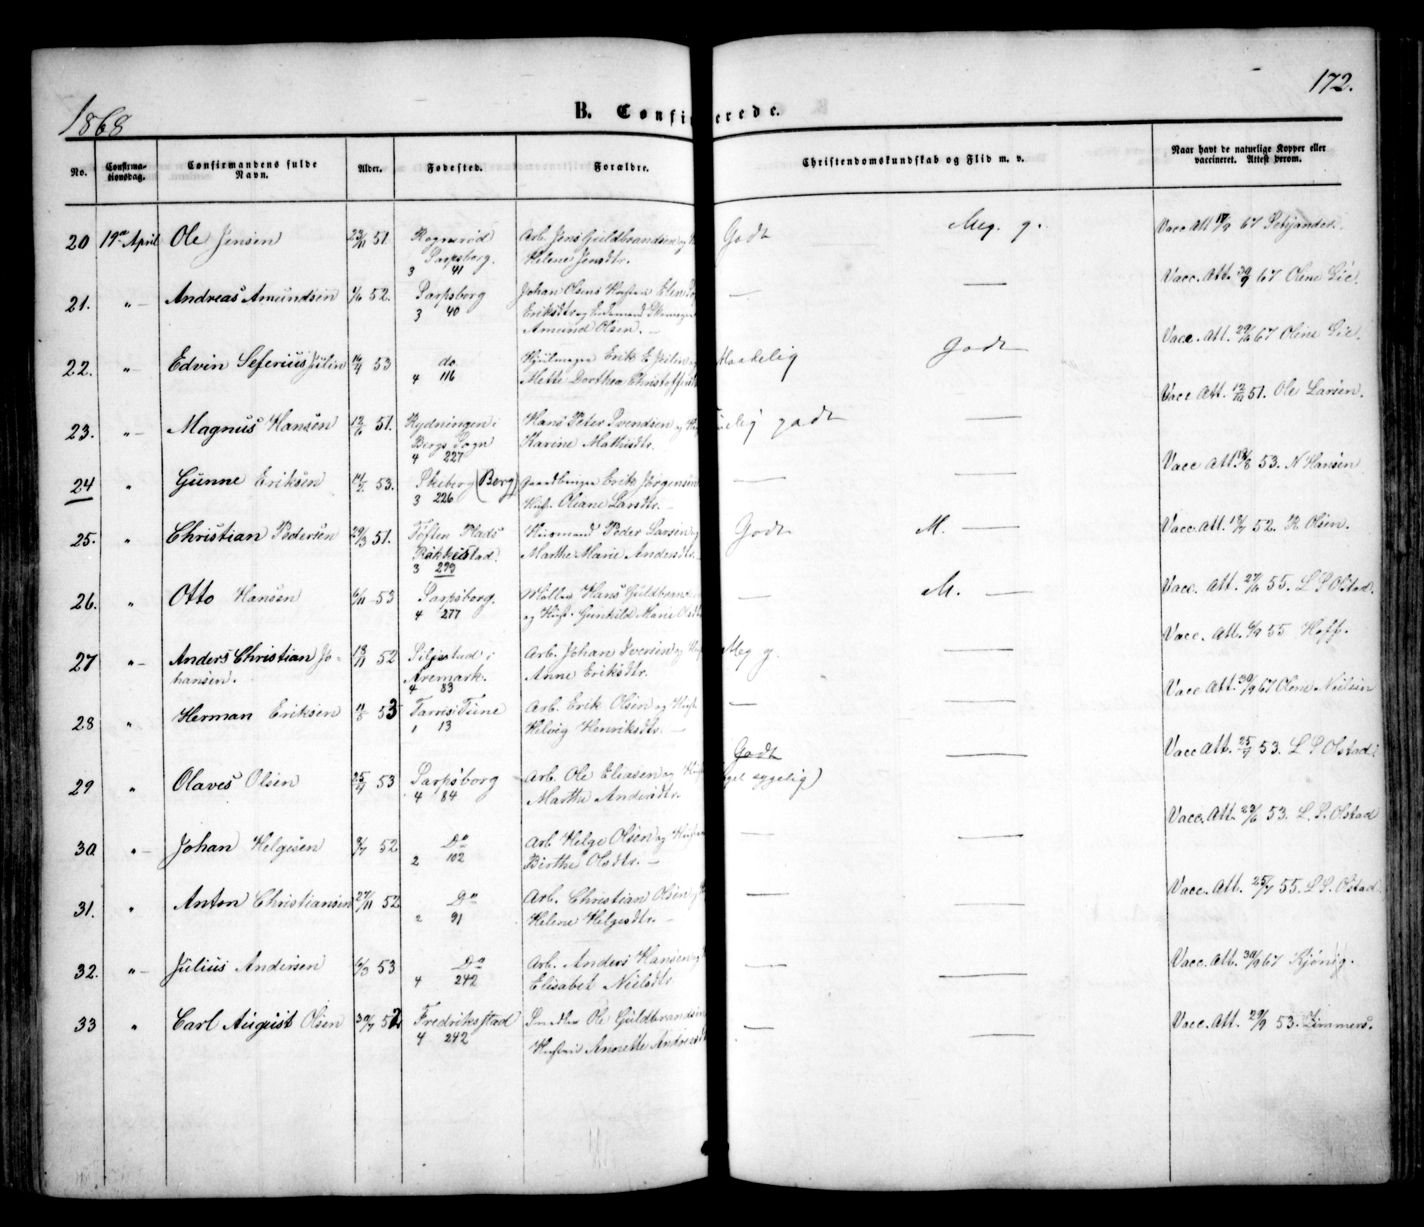 172.
1868
B. Confirmerede.
No. Confirmationsdag. Confirmandens fulde Navn. Alder. Fødested. Forældre. Christendomskundskab og Flid m. v. Naar havt de naturlige Kopper eller vaccineret. Attest derom.
20 19de April Ole Jensen 23/11 51. Sarpsborg. 3 41 Arb. Jens Guldbrandsen og Helene Jensdtr. Godt Meg. g. Vacc Att 67
21. "— Andreas Amundsen 52. Sarpsborg 3 40 Johan Olsens Hustru Eriksdtr og Amund Olsen. — — — Vacc. Att. 30/9 67 Olene Lie.
22. " Edvin Seferius Julin 53 do 4 116 Hjulmager Erik E. Julin og Mette Dorthea Maadelig Godt Vacc. Att. 67 Oline Lie.
23. "— Magnus Hansen 12/6 51. Rydningen i Bergs Sogn 4 227 Hans Peter Svendsen og Karine Mathisdtr. godt — Vacc Att. 12/10 51. Ole Larsen.
24 " Gunne Eriksen 53. Skeberg (Berg) 3 226 Gaardbruger Erik Jørgensen Hust. Oleane Larsdtr. — — Vacc Att. 53. N Hansen
25. " Christian Pedersen 29/3 51. Toften Plads Rakkestad. 3 299 Huusmand Peder Larsen og Marthe Marie Andersdtr. Godt M. — Vacc. Att. 52. R Olsen.
26. " Otto Hansen 53 Sarpsborg. 4 277 Møller Hans Guldbrandsen og Hust. Gunhild Marie — M. — Vacc. Att. 27/6 55. L P Olstad.
27 "— Anders Christian Johansen. 13/11 52 Aremark. 4 83 Arb. Johan Iversen og Hust Anne Eriksdtr. Meg g. — Vacc. Att. 6/9 55 Hoff.
28 " Herman Eriksen 11/5 53 i Tune 1 13 Arb. Erik Olsen og Hust Helvig Henriksdtr. — — — Vacc. Att. 30/9 67 Olene Nielsen
29 " Olaves Olsen 25/4 53 Sarpsborg 4 84 Arb. Ole Eliasen og Marthe Andersdtr. Godt sygelig) — Vacc Att. 25/9 53. L P Olstad
30 "— Johan Helgesen 9/7 52 Do 2 102 Arb Helge Olsen og Birthe Olsdtr. — — — Vacc. Att. 29/6 53. L. P. Olstad
31. " Anton Christiansen 27/11 52 Do 2 91 Arb. Christian Olsen Helene Helgesdtr. — — — Vacc. Att. 25/7 55. L P. Olstad
32. "— Julius Andersen 6/3 53 Do 4 242 Arb. Anders Hansen Elisabet Nielsdtr. — — Vacc. Att. 30/9 67
33 " Carl August Olsen 30/7 52 Fredriksstad 4 242 Ole Guldbrandsen Hustru Annette — — Vacc. Att. 29/9 53.